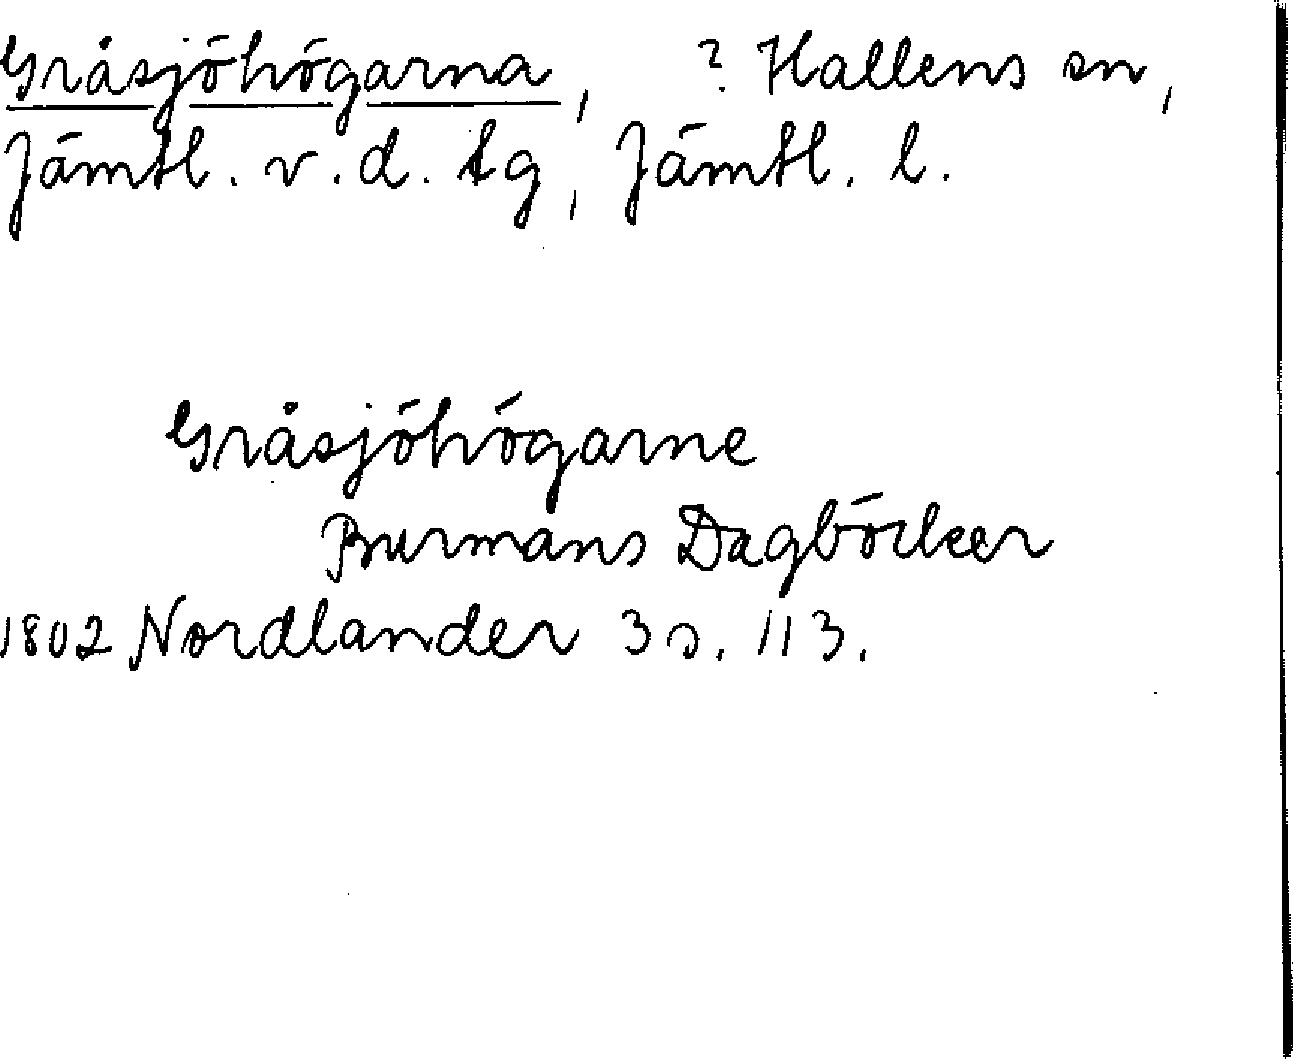 Gråsjöhögarna, ? Hallens sn,
Jämtl. v. d. tg, Jämtl. l.
Gråsjöhögarne
Burmans Dagböcker
1802 Nordlander 3 s. 113.